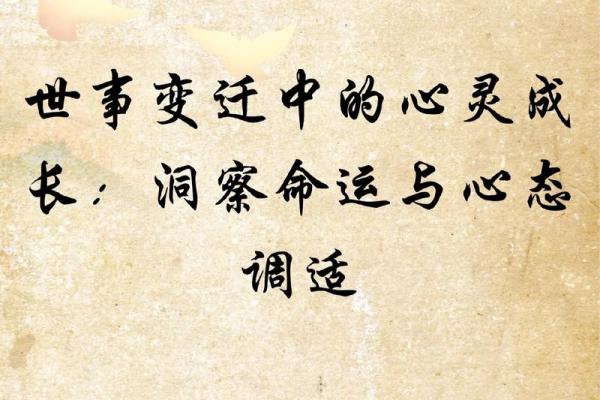 世事变迁中的心灵成
长：洞察命运与心态
调适